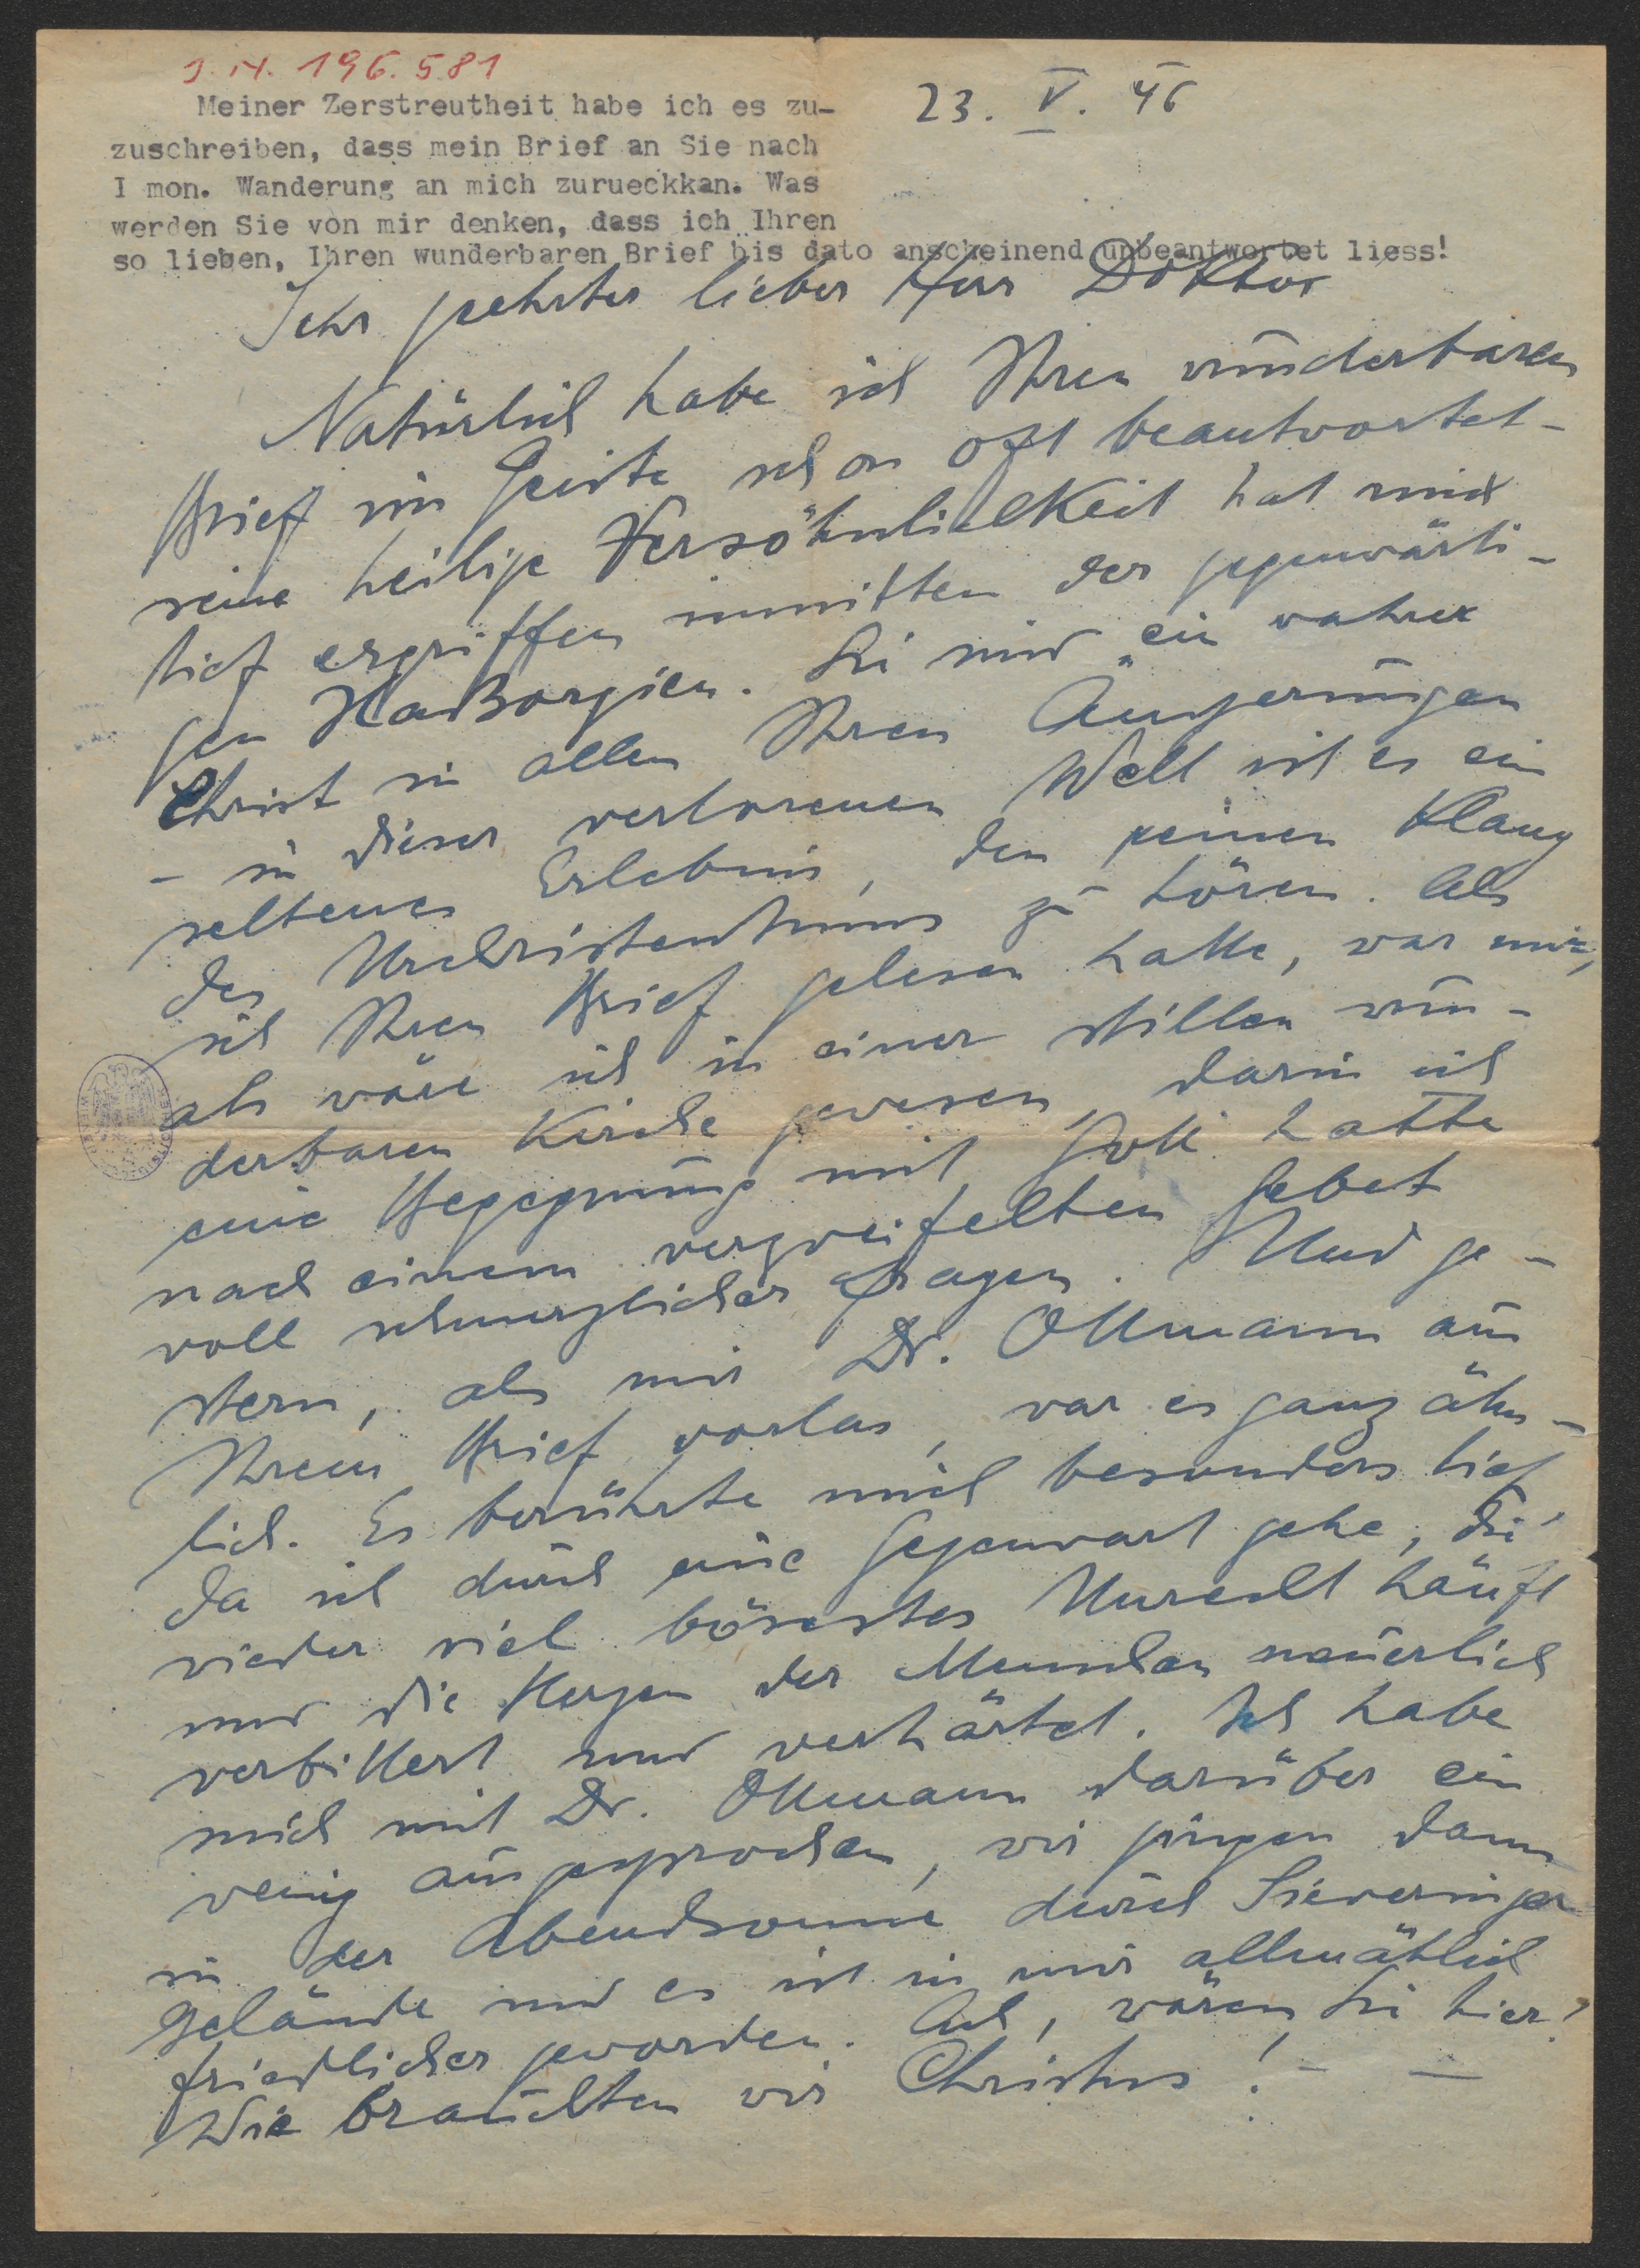 J.N. 196.581
Meiner Zerstreutheit habe ich es zu-
zuschreiben, dass mein Brief an Sie nach
I mon. Wanderung an mich zurueckkan. Was
werden Sie von mir denken, dass ich Ihren
so lieben, Ihren wunderbaren Brief bis dato anscheinend unbeantwortet liess!
23. V. 46
Sehr geehrter lieber Herr Doktor
Natürlich habe ich Ihren wunderbaren
Brief im Geiste schon oft beantwortet -
seine heilige Versöhnlichkeit hat mich
tief ergriffen inmitten der gegenwärti-
gen Haßorgien. Sie sind ein wahrer
Christ in allen Ihren Äußerungen
- in dieser verlorenen Welt ist es ein
seltenes Erlebnis, den reinen Klang
des Urchristentums zu hören. Als
ich Ihren Brief gelesen hatte, war mir,
als wäre ich in einer stillen wun-
derbaren Kirche gewesen, darin ich
eine Begegnung mit Gott hatte
nach einem verzweifelten Gebet
voll schmerzlicher Fragen. Und ge-
stern, als mir Dr. Ottmann aus
Ihrem Brief vorlas, war es ganz ähn-
lich. Es berührte mich besonders tief
da ich durch eine Gegenwart gehe, die
wieder viel bösestes Unrecht häuft
und die Herzen der Menschen neuerlich
verbittert und verhärtet. Ich habe
mich mit Dr. Ottmann darüber ein
wenig ausgesprochen, wir gingen dann
in der Abendsonne durch Sieveringer
Gelände und es ist in mir allmählich
friedlicher geworden. Ach, wären Sie hier!
Wie brauchten wir Christus! - -